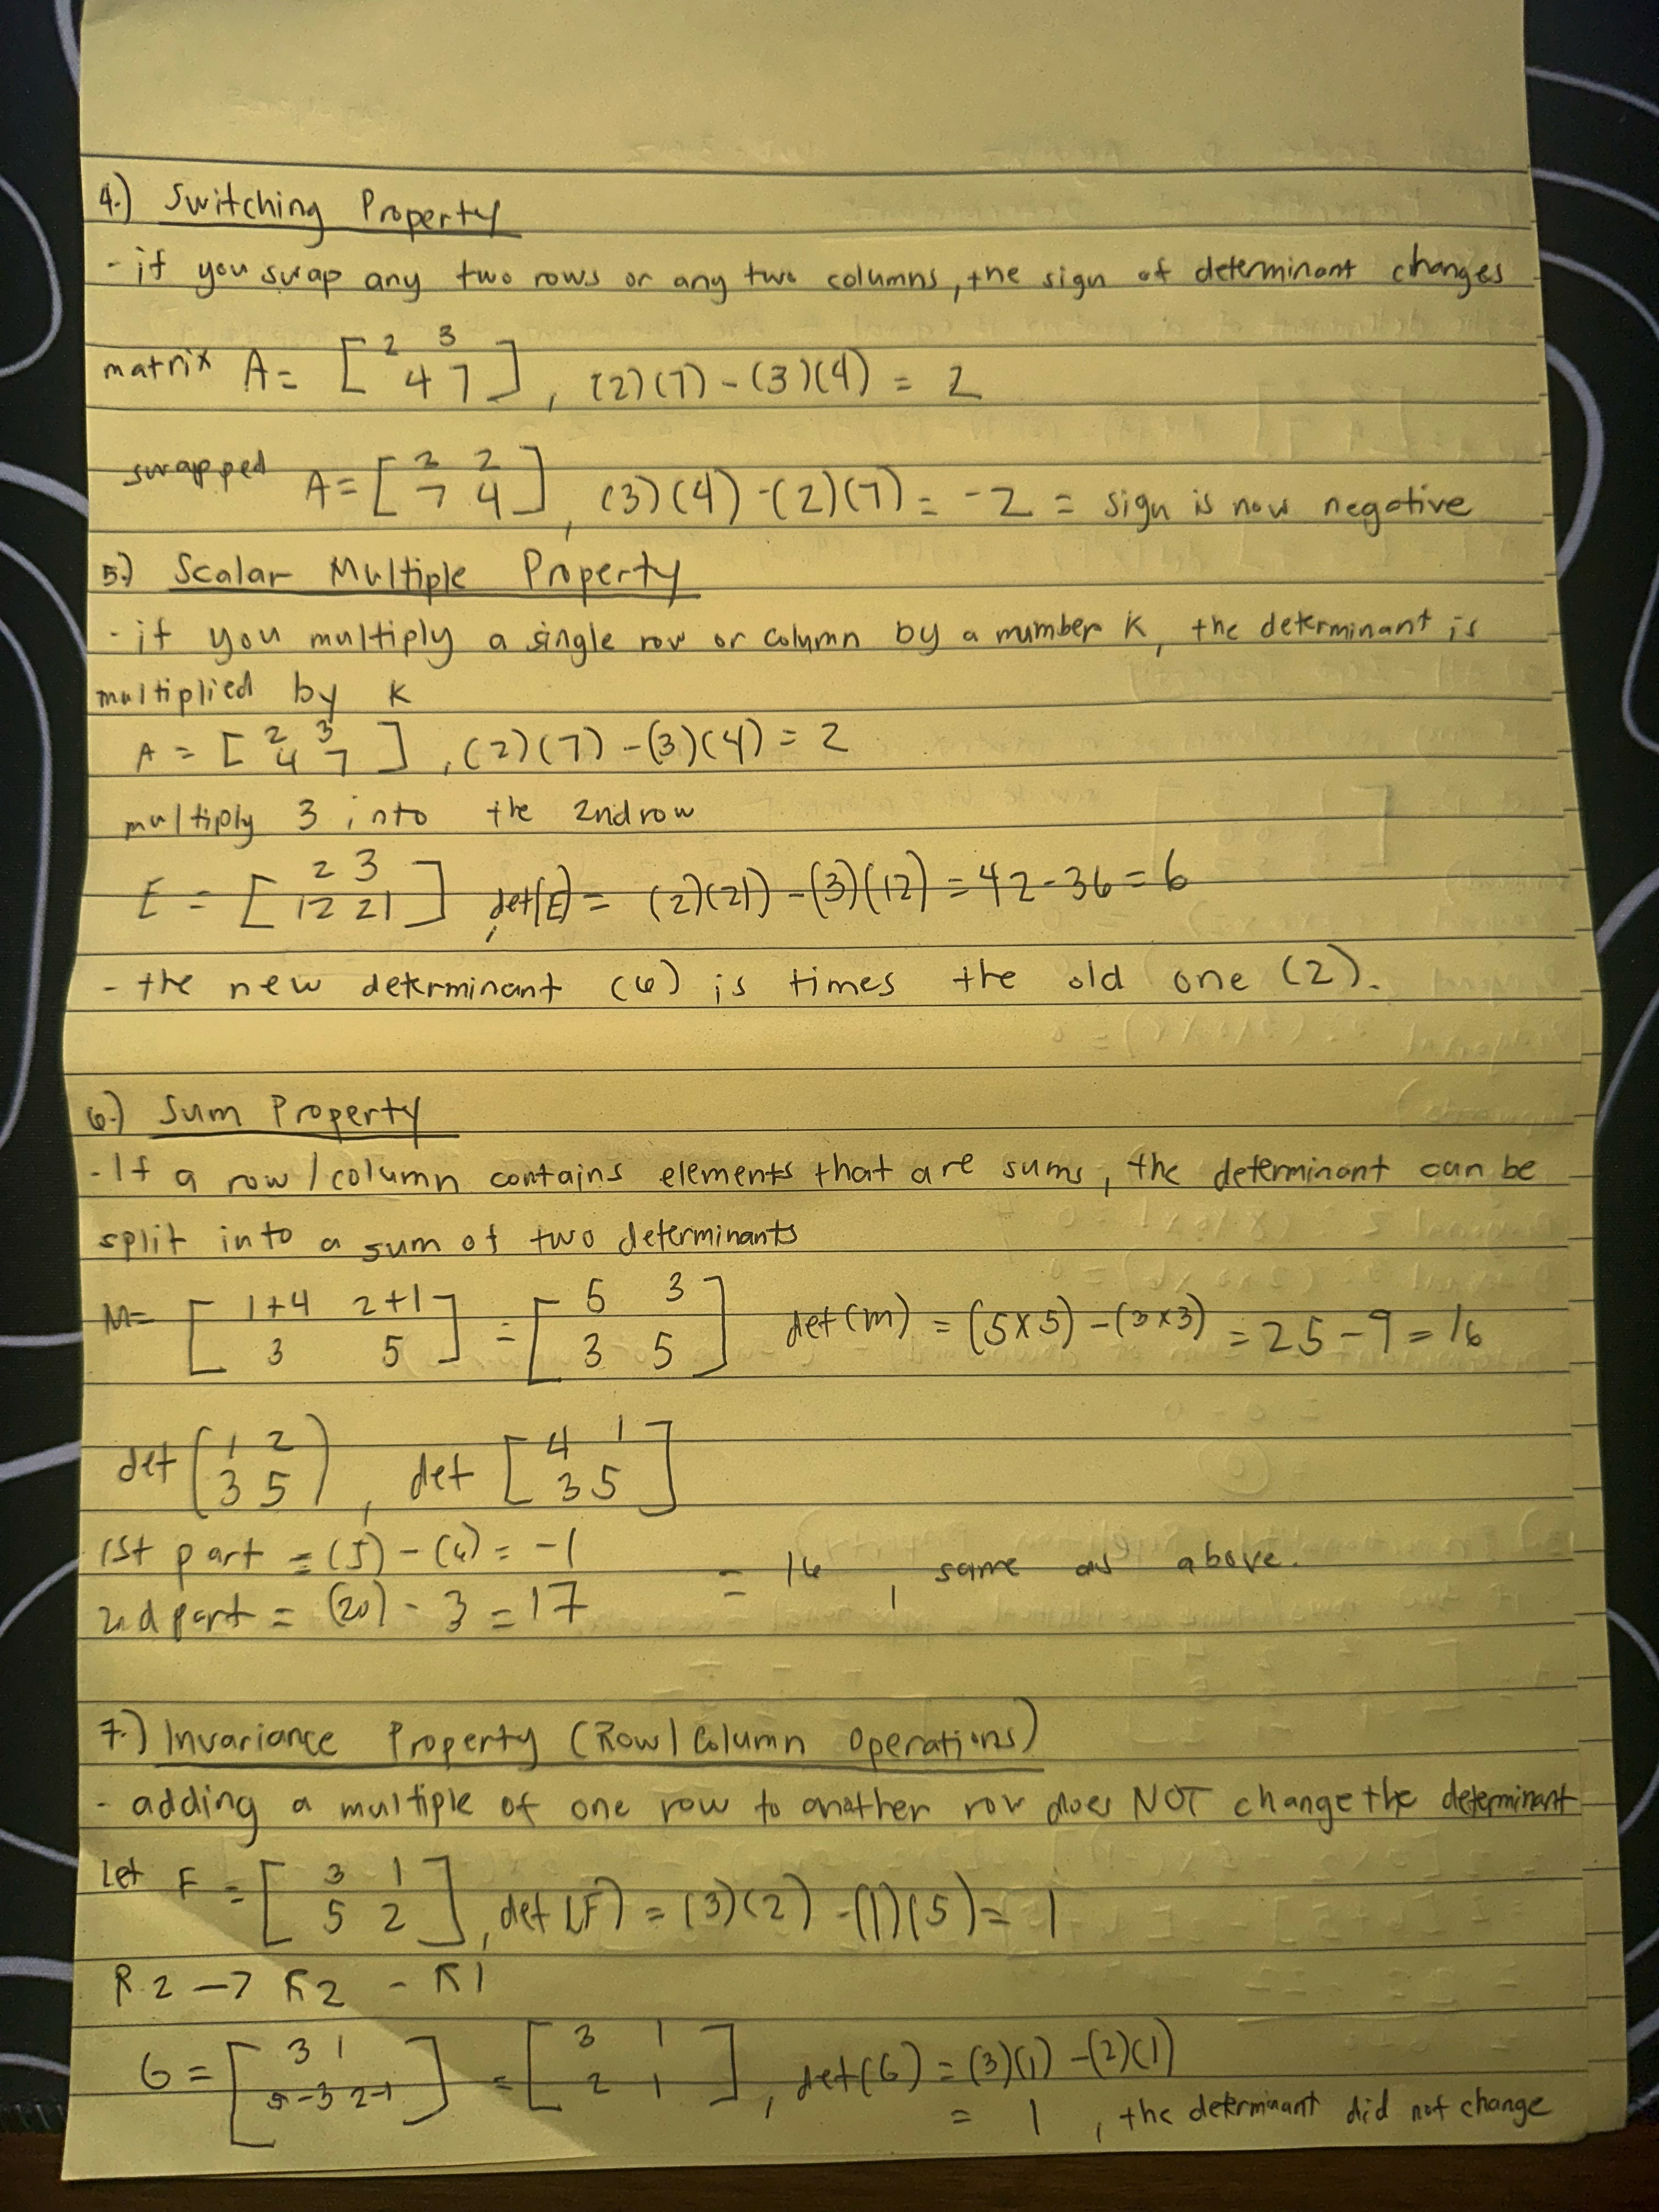 4.) Switching Property
- if you swap any two rows or any two columns, the sign of determinant changes
matrix A = [ 2 3
4 7 ] , (2)(7) - (3)(4) = 2
swapped A = [ 3 2
7 4 ] , (3)(4) - (2)(7) = -2 = sign is now negative
5.) Scalar Multiple Property
- if you multiply a single row or column by a number K, the determinant is
multiplied by K
A = [ 2 3
4 7 ] , (2)(7) - (3)(4) = 2
multiply 3 into the 2nd row
E = [ 2 3
12 21 ] , det(E) = (2)(21) - (3)(12) = 42 - 36 = 6
- the new determinant (6) is times the old one (2).
6.) Sum Property
- If a row/column contains elements that are sums, the determinant can be
split into a sum of two determinants
M = [ 1+4 2+1
3 5 ] = [ 5 3
3 5 ] det(M) = (5x5) - (3x3) = 25 - 9 = 16
det ( 1 2
3 5 ) , det [ 4 1
3 5 ]
1st part = (5) - (6) = -1
2nd part = (20) - 3 = 17 = 16 , same as above.
7.) Invariance Property (Row/Column Operations)
- adding a multiple of one row to another row does NOT change the determinant
Let F = [ 3 1
5 2 ] , det(F) = (3)(2) - (1)(5) = 1
R2 → R2 - R1
G = [ 3 1
5-3 2-1 ] = [ 3 1
2 1 ] , det(G) = (3)(1) - (2)(1)
= 1 , the determinant did not change